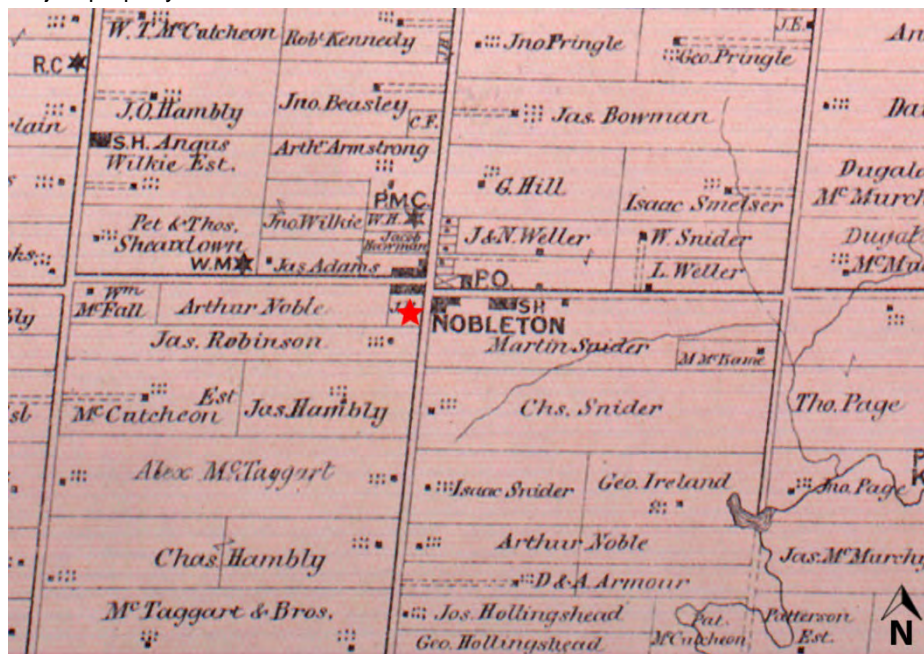 W. T. McCutcheon
Robt Kennedy
Jno Pringle
J.E.
Geo. Pringle
An
R.C
J.O. Hambly
Jno. Beasley
C.F.
Jas. Bowman
Da
lain
S.H. Angus
Wilkie Est.
Arthr Armstrong
G. Hill
Isaac Smelser
Dugald
McMurch
P.M.C.
Pet & Thos.
Sheardown
Jno Wilkie
W.H.
Jacob
Bowman
J & N. Weller
W. Snider
Dugal
McMu
oks
W.M
Jas Adams
P.O.
L. Weller
Wm
McFall
Arthur Noble
J
S H
NOBLETON
Jas. Robinson
Martin Snider
M McKame
Est
McCutcheon
Jas. Hambly
Chs. Snider
Tho. Page
Alex McTaggart
Isaac Snider
Geo. Ireland
P
K
Jno. Page
Chas. Hambly
Arthur Noble
Jas. McMurchy
D & A. Armour
McTaggart & Bros.
Jos. Hollingshead
Geo. Hollingshead
Pat.
McCutcheon
Patterson
Est.
N